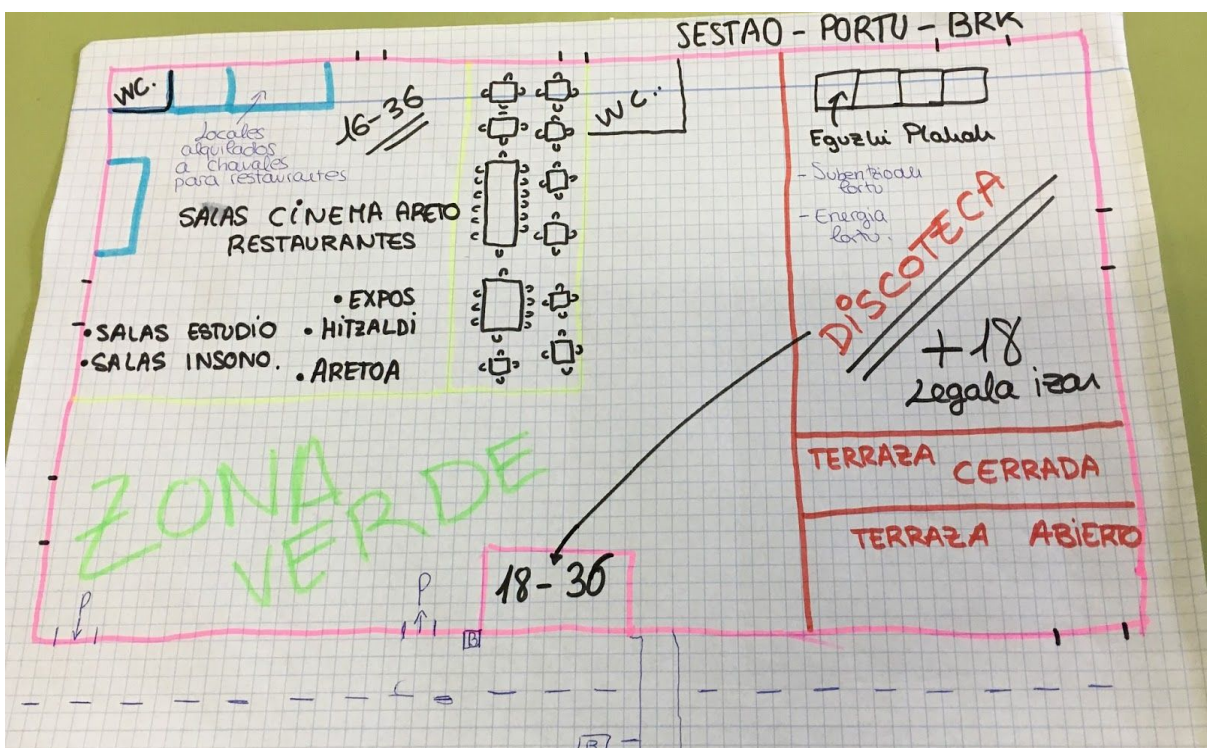 SESTAO - PORTU - BRK
WC.
Locales
alquilados
a chavales
para restaurantes
16-36
WC..
SALAS CINEMA ARETO
RESTAURANTES
• EXPOS
• SALAS ESTUDIO • HITZALDI
• SALAS INSONO. • ARETOA
Eguzki Plakak
- Subentzioak
lortu
- Energia
lortu.
DISCOTECA
+18
Legala izan
TERRAZA CERRADA
TERRAZA ABIERTO
ZONA
VERDE
18-36
P
P
B
B